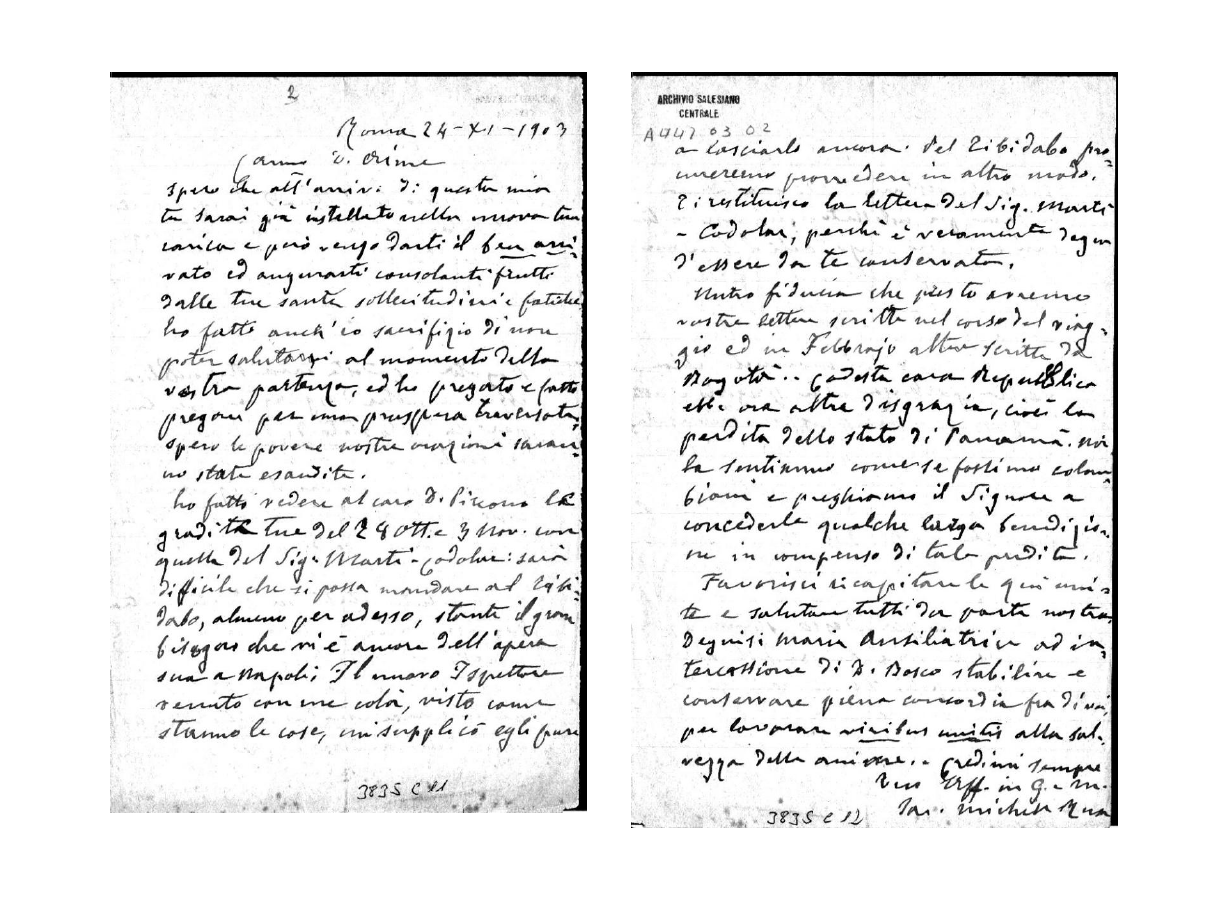 2
Roma 24-XI-1903
Carmo D. Aime
Spero che all'arrivo di questa mia
tu sarai già installato nella nuova tua
carica e però vengo darti il ben arri-
vato ed augurarti consolanti frutti
dalle tue sante sollecitudini e fatiche
ho fatto anch'io sacrifizio di non
poter salutarvi al momento della
vostra partenza, ed ho pregato e fatto
pregare per una prospera traversata;
spero le povere nostre orazioni saran-
no state esaudite.
ho fatto vedere al caro D. Piccono le
gradite tue del 28 Ott. e 3 Nov. con
quella del Sig. Marti-Codolar: sarà
difficile che si possa mandare al Tibi-
dabo, almeno per adesso, stante il gran
bisogno che vi è ancora dell'opera
sua a Napoli; Il nuovo Ispettore
venuto con me colà, visto come
stanno le cose, mi supplicò egli pure
3835 C 11
ARCHIVIO SALESIANO
CENTRALE
A447 03 02
a lasciarlo ancora. Pel Tibidabo pro-
cureremo provvedere in altro modo.
Ti restituisco la lettera del Sig. Marti
- Codolar, perchè è veramente degna
d'essere da te conservata.
Nutro fiducia che presto avremo
vostre lettere scritte nel corso del viag-
gio ed in Febbrajo altre scritte da
Bogotà.. Codesta cara Repubblica
ebbe ora altra disgrazia, cioè la
perdita dello stato di Panamà. Noi
la sentimmo come se fossimo colom-
biani e preghiamo il Signore a
concederle qualche larga benedizio-
ne in compenso di tale perdita.
Favorisci ricapitare le qui uni-
te e salutare tutti da parte nostra.
Degnisi Maria Ausiliatrice ad in-
tercessione di D. Bosco stabilire e
conservare piena concordia fra di voi
per lavorare viribus unitis alla sal-
vezza delle anime. e credimi sempre
Tuo Aff. in G. e M.
Sac. Michele Rua
3835 C 12